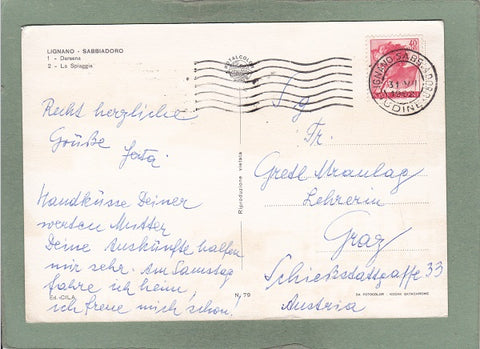 LIGNANO - SABBIADORO
1 - Darsena
2 - La Spiaggia
Recht herzliche
Grüße Jota
Handküsse Deiner
werten Mutter
Deine Auskünfte halfen
mir sehr. Am Samstag
fahre ich heim,
ich freue mich schon!
Ed. CILA
N. 70
Riproduzione vietata
40
LIGNANO SABBIADORO
UDINE
Fr.
Gretl Straulag
Lehrerin
Graz
Schießstattgasse 33
Austria
DA FOTOCOLOR - KODAK EKTACHROME